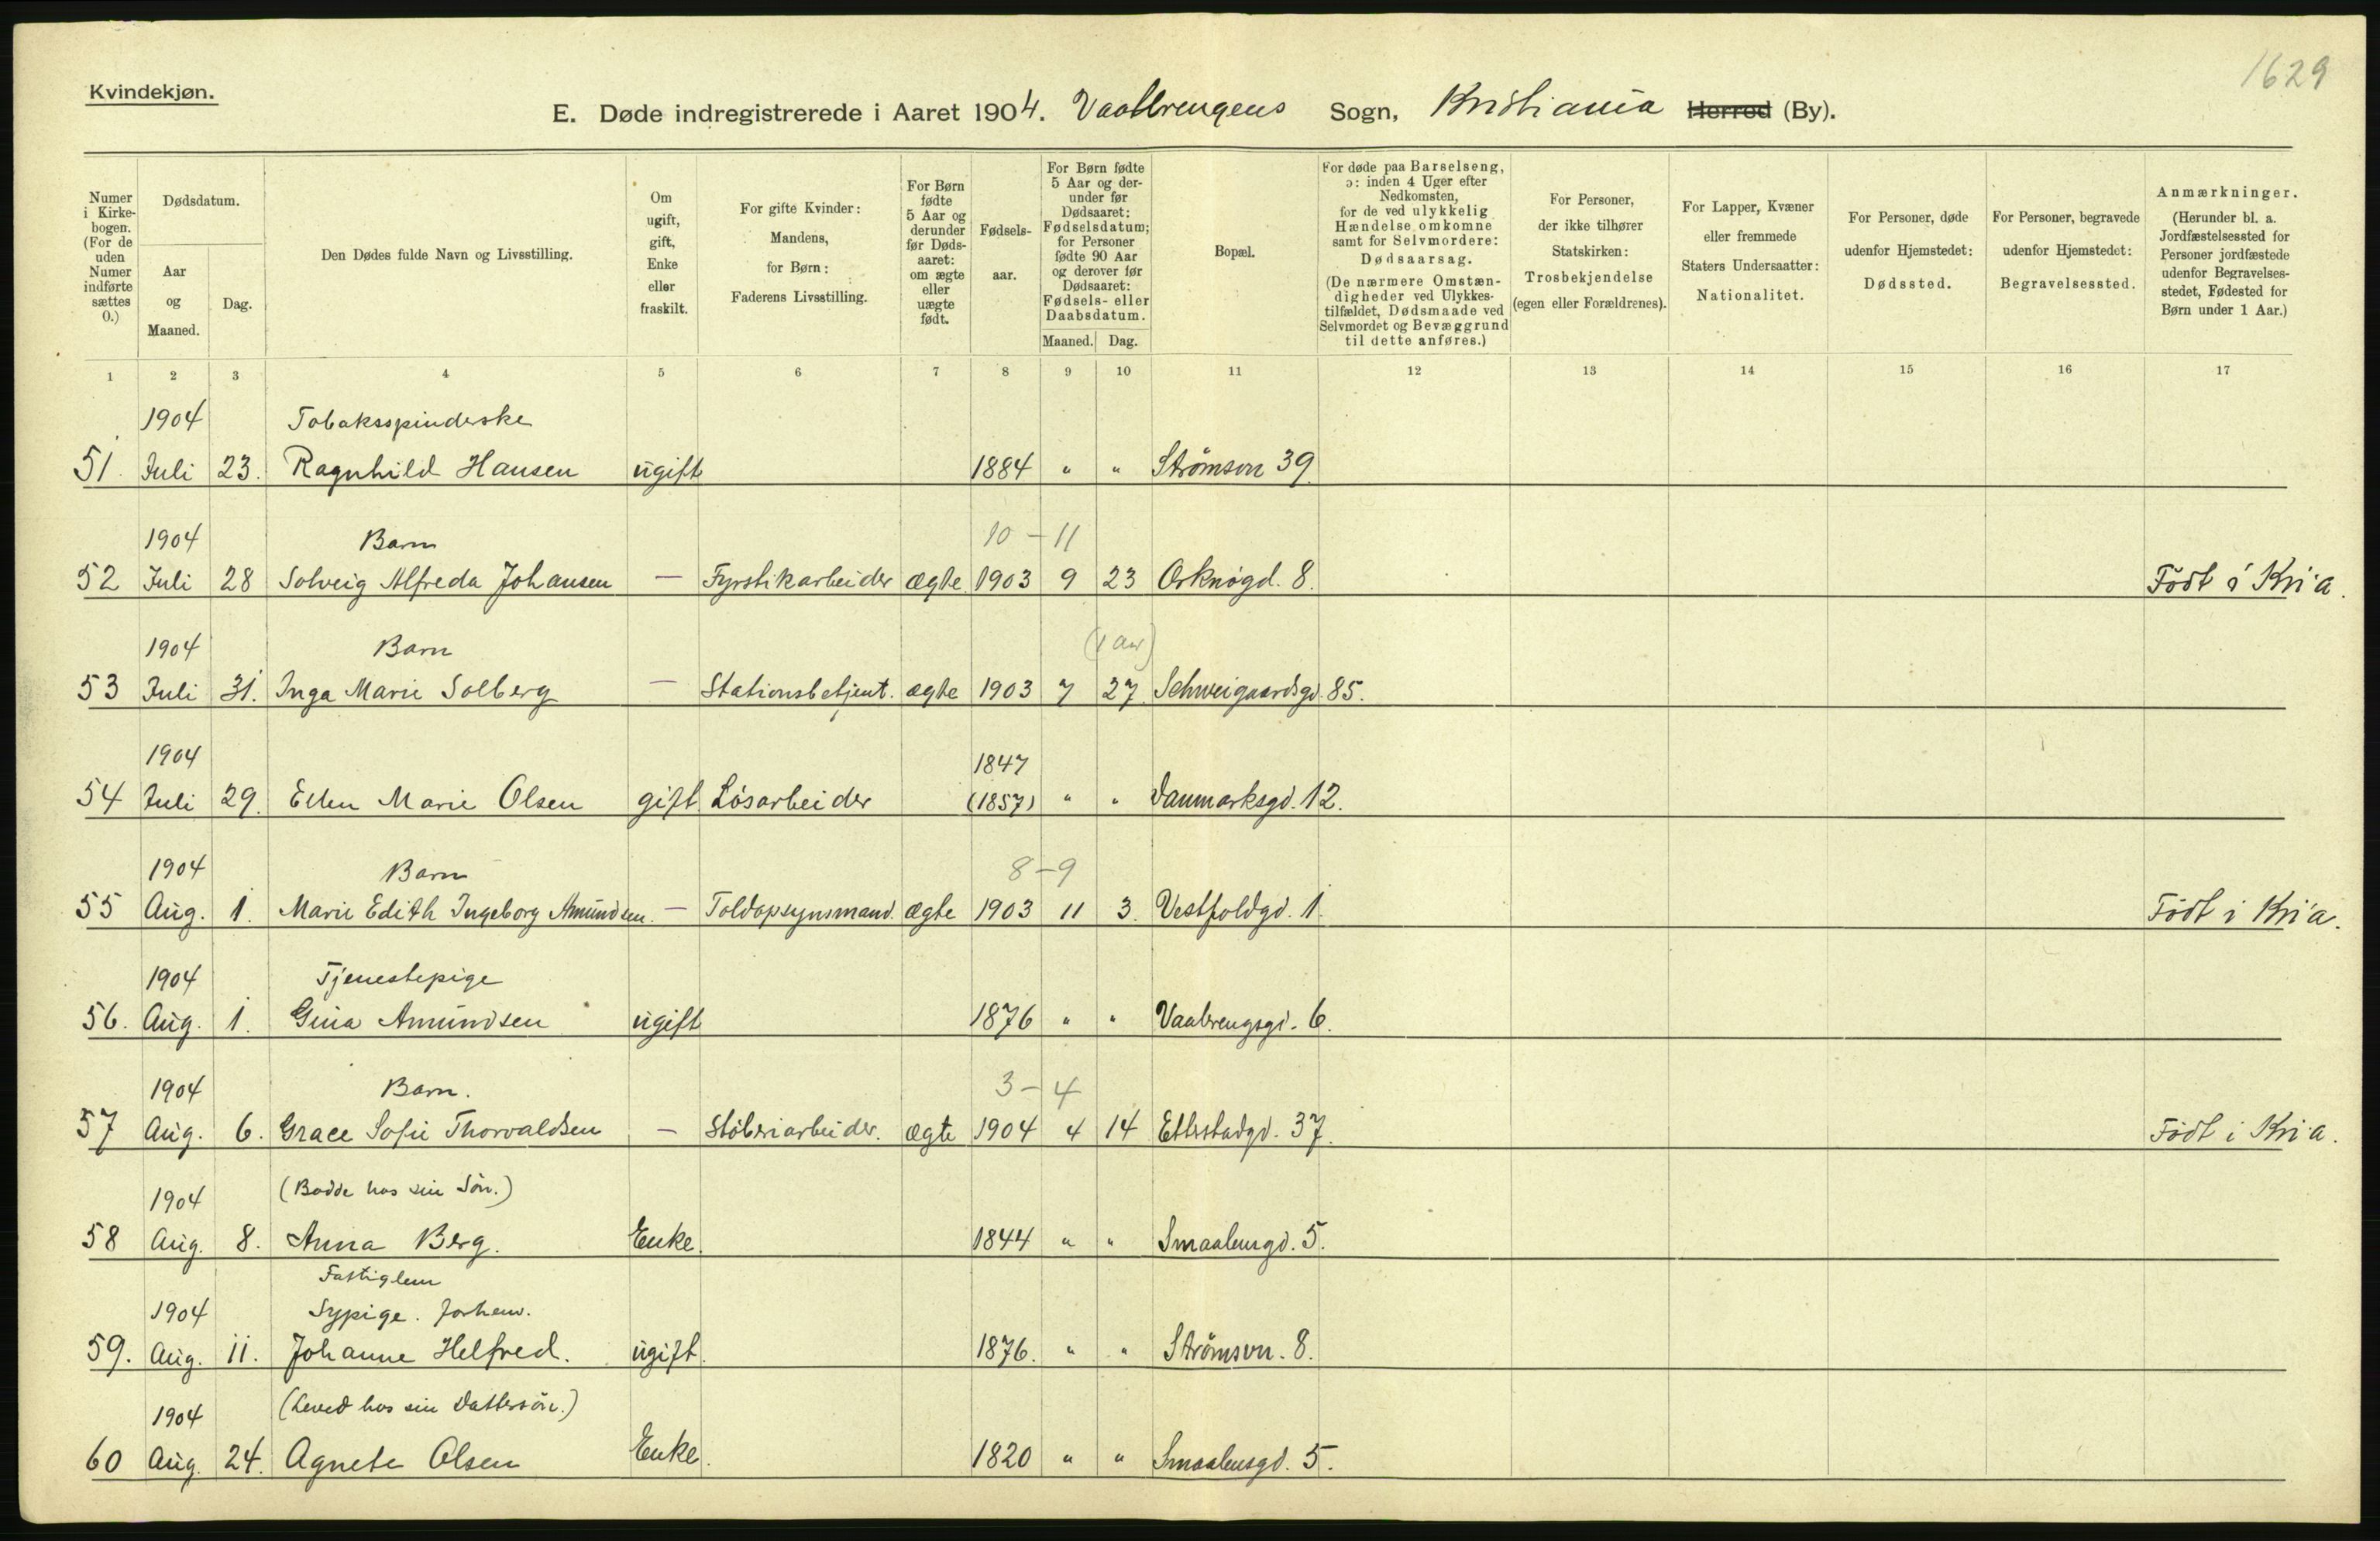 1629
Kvindekjøn.
E. Døde indregistrerede i Aaret 1904. Vaalerengens Sogn, Kristiania Herred (By).
Numer i Kirke-bogen. (For de uden Numer indførte sættes 0.)
Dødsdatum.
Aar og Maaned.
Dag.
Den Dødes fulde Navn og Livsstilling.
Om ugift, gift, Enke eller fraskilt.
For gifte Kvinder: Mandens, for Børn: Faderens Livsstilling.
For Børn fødte 5 Aar og derunder før Døds-aaret: om ægte eller uægte født.
Fødsels-aar.
For Børn fødte 5 Aar og der-under før Dødsaaret: Fødselsdatum; for Personer fødte 90 Aar og derover før Dødsaaret: Fødsels- eller Daabsdatum.
Maaned. Dag.
Bopæl.
For døde paa Barselseng, ɔ: inden 4 Uger efter Nedkomsten, for de ved ulykkelig Hændelse omkomne samt for Selvmordere: Dødsaarsag. (De nærmere Omstæn-digheder ved Ulykkes-tilfældet, Dødsmaade ved Selvmordet og Bevæggrund til dette anføres.)
For Personer, der ikke tilhører Statskirken: Trosbekjendelse (egen eller Forældrenes).
For Lapper, Kvæner eller fremmede Staters Undersaatter: Nationalitet.
For Personer, døde udenfor Hjemstedet: Dødssted.
For Personer, begravede udenfor Hjemstedet: Begravelsessted.
Anmærkninger. (Herunder bl. a. Jordfæstelsessted for Personer jordfæstede udenfor Begravelses-stedet, Fødested for Børn under 1 Aar.)
1 2 3 4 5 6 7 8 9 10 11 12 13 14 15 16 17
1904 Tobaksspinderske
51. Juli 23. Ragnhild Hansen ugift 1884 " " Strømsvn 39.
1904 Barn 10 - 11
52 Juli 28 Solveig Alfreda Johansen — Fyrstikarbeider ægte 1903 9 23 Orknøgd. 8. Født i Kri'a.
1904 Barn (1 aar)
53 Juli 31. Inga Marie Solberg — Stationsbetjent. ægte 1903 7 27. Schweigaardsgd. 85.
1904 1847
54 Juli 29. Ellen Marie Olsen gift Løsarbeider (1857) " " Danmarksgd. 12.
1904 Barn 8-9
55 Aug. 1. Marie Edith Ingeborg Amundsen. — Toldopsynsmand. ægte 1903 11 3. Vestfoldgd. 1. Født i Kri'a.
1904 Tjenestepige
56. Aug. 1. Gina Amundsen ugift 1876 " " Vaalerengsgd. 6.
1904 Barn. 3-4
57 Aug. 6. Grace Sofie Thorvaldsen — Støberiarbeider. ægte 1904 4 14 Etterstadgd. 37. Født i Kri'a.
1904 (Bodde hos sin Søn.)
58 Aug. 8. Anna Berg. Enke. 1844 " " Smaalensgd. 5.
Fattiglem
1904 Sypige. forhenv.
59. Aug. 11. Johanne Helfred. ugift. 1876. " " Strømsvn. 8.
1904 (Leved hos sin Dattersøn.)
60 Aug. 24. Agnete Olsen Enke. 1820 " " Smaalensgd. 5.